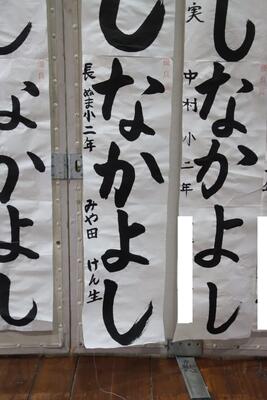 し
実
なかよし
中村小二年
なかよし
長ぬま小二年
みや田 けん生
し
なかよし